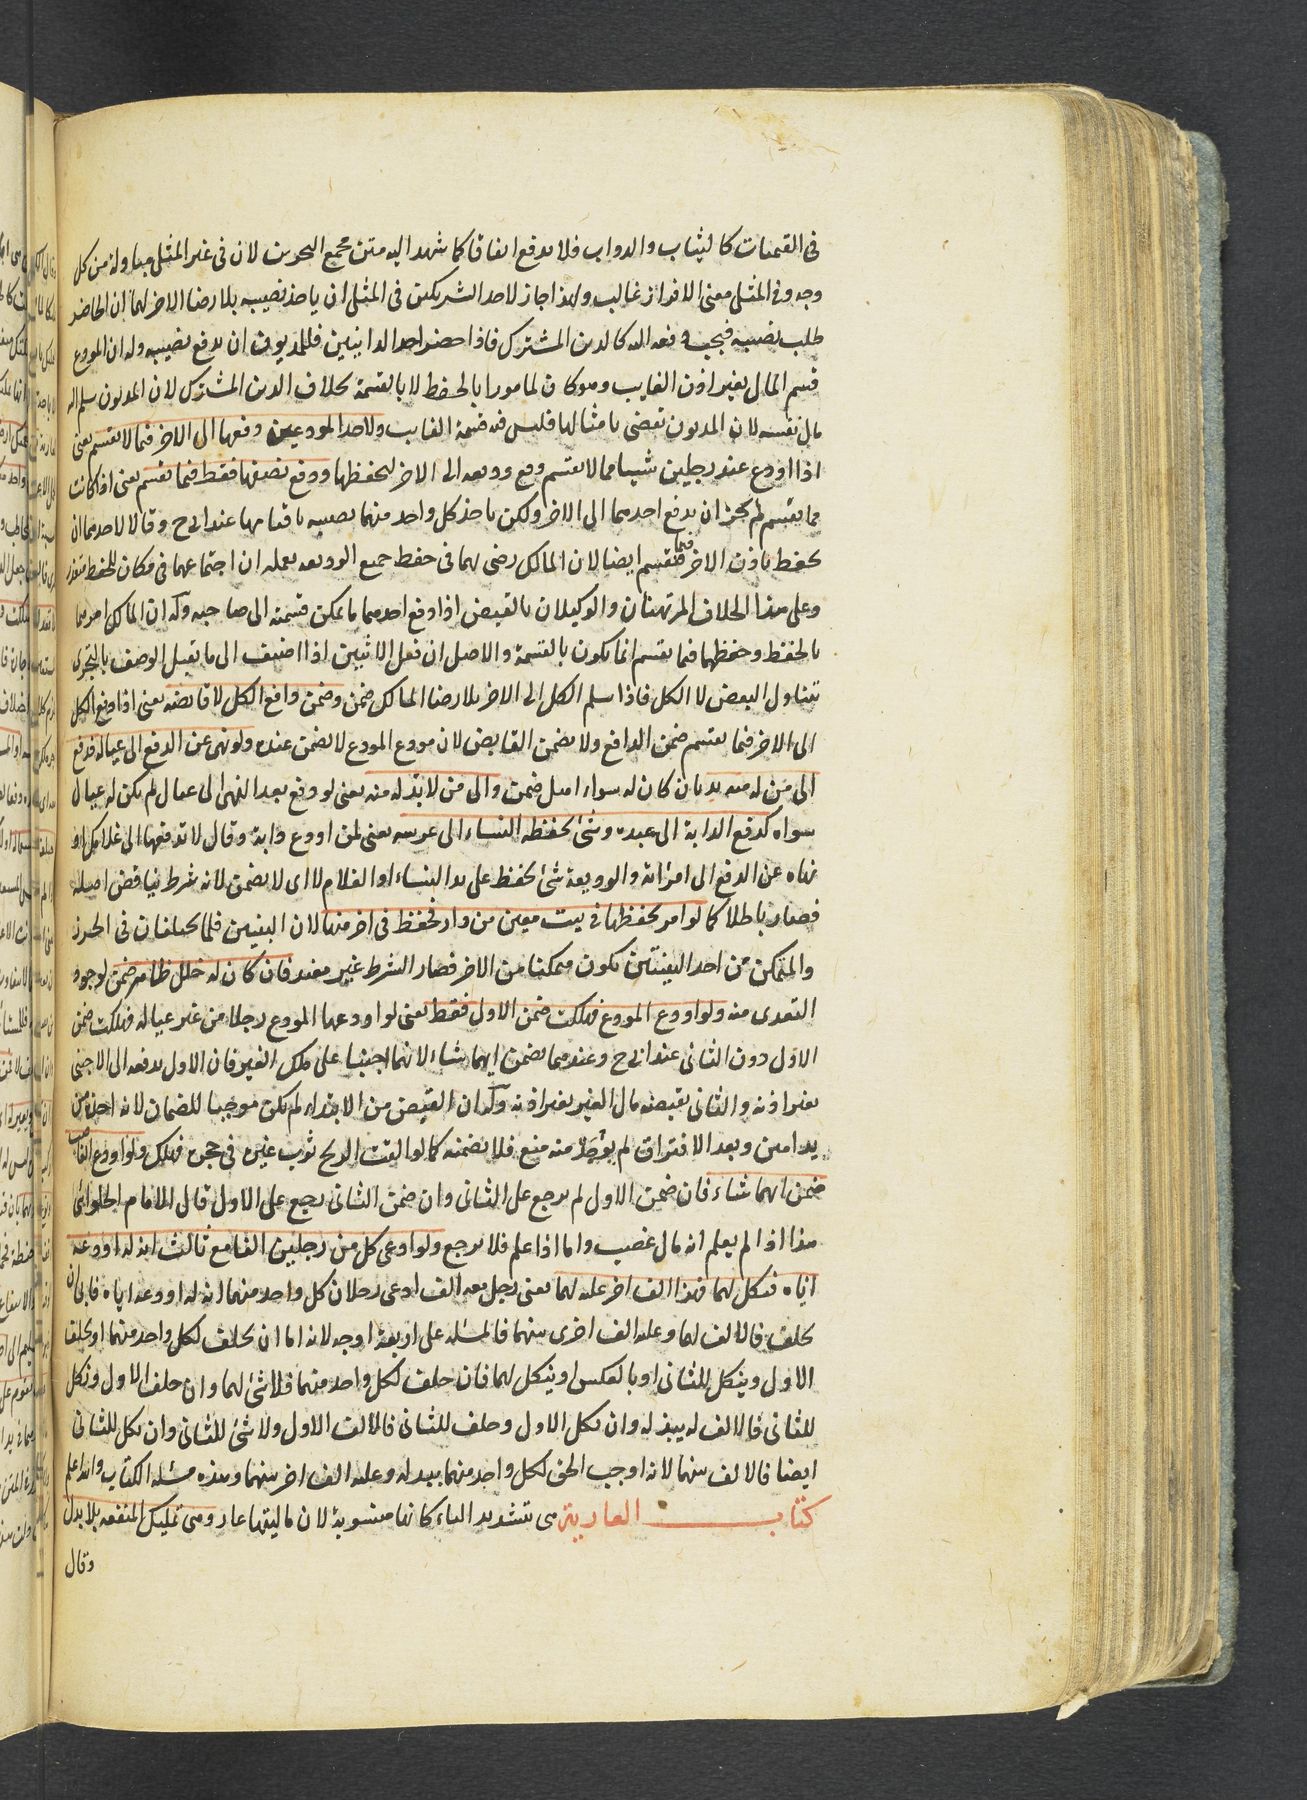 في القيميات كالثياب والدواب فلا يدفع اتفاقا كما شهد اليه متن مجمع البحرين لان في غير المثلي مبادلة من كل
وجه وفي المثلي معنى الافراز غالب ولهذا جاز لاحد الشريكين في المثلي ان ياخذ نصيبه بلا رضا الاخر لهما ان الحاضر
طلب نصيبه فيجب دفعه اليه كالدين المشترك فاذا حضر احد الدائنين فللمديون ان يدفع نصيبه وله ان المودع
قسم المال بغير اذن الغايب وهو كان مامورا بالحفظ لا بالقسمة بخلاف الدين المشترك لان المديون سلم اليه
مال نفسه لان الديون تقضى بامثالها فليس فيه قسمة الغايب ولاحد المودعين دفعها الى الاخر فيما لا يقسم يعني
اذا اودع عند رجلين شيا مما لا يقسم دفع وديعه الى الاخر لحفظها ودفع نصفها فقط فيما يقسم يعني اذا كانت
مما يقسم لم يجز ان يدفع احدهما الى الاخر ولكن ياخذ كل واحد منهما نصيبه باقتسامهما عند ابي ح وقالا لاحدهما ان
يحفظ باذن الاخر فيما يقسم ايضا لان المالك رضي بهما في حفظ جميع الوديعة بعلمه ان اجتماعهما في مكان للحفظ متعذر
وعلى هذا الخلاف المرتهنان والوكيلان بالقبض اذا دفع احدهما ما يمكن قسمته الى صاحبه وله ان المالك امرهما
بالحفظ وحفظهما فيما يقسم انما يكون بالقسمة والاصل ان فعل الاثنين اذا اضيف الى ما يقبل الوصف بالتجزي
تناول البعض لا الكل فاذا سلم الكل الى الاخر بلا رضا المالك ضمن وضمن دافع الكل لا قابضه يعني اذا دفع الكل
الى الاخر فيما يقسم ضمن الدافع ولا يضمن القابض لان مودع المودع لا يضمن عنده ولو نهى عن الدفع الى عياله فدفع
الى من له منه بد بان كان له سواه اهل ضمن والى من لا بد له منه يعني لو دفع بعد النهي الى عيال لم يكن له عيال
سواه كدفع الدابة الى عبده وشئ يحفظه النساء الى عرسه يعني لمن اودع دابة وقال لا تدفعها الى غلامك او
نهاه عن الدفع الى امرأته والوديعة شئ يحفظ على يد النساء او الغلام لا اي لا يضمن لانه شرط يناقض اصله
فصار باطلا كما لو امر بحفظها في بيت معين من دار فحفظ في اخر منها لان البيتين قلما يختلفان في الحرز
والمتمكن من احد البيتين يكون متمكنا من الاخر فصار الشرط غير مفيد فان كان له خلل ظاهر ضمن لوجود
التعدي منه ولو اودع المودع فهلكت ضمن الاول فقط يعني لو اودعها المودع رجلا من غير عياله فهلكت ضمن
الاول دون الثاني عند ابي ح وعندهما يضمن ايهما شاء لانهما اجتنيا على ملك الغير فان الاول بدفعه الى الاجنبي
بغير اذنه والثاني بقبضه مال الغير بغير اذنه وله ان القبض من الابتداء لم يكن موجبا للضمان لانه اخذه من
يد امين وبعد الافتراق لم يوجد منه منع فلا يضمنه كما لو القت الريح ثوب غيره في حجره فهلك ولو اودع الغاصب
ضمن ايهما شاء فان ضمن الاول لم يرجع على الثاني وان ضمن الثاني يرجع على الاول قال الامام الحلوائي
هذا اذا لم يعلم انه مال غصب واما اذا علم فلا يرجع ولو ادعى كل من رجلين الفا مع ثالث انه له اودعه
اياه فنكل لهما فهذا الف اخر عليه لهما يعني رجل معه الف ادعى رجلان كل واحد منهما انه له اودعه اياه فابى ان
يحلف فالالف لهما وعليه الف اخرى بينهما فالمسئلة على اربعة اوجه لانه اما ان يحلف لكل واحد منهما او يحلف
الاول وينكل للثاني او بالعكس او ينكل لهما فان حلف لكل واحد منهما فلا شئ لهما وان حلف الاول ونكل
للثاني فالالف له يبذله وان نكل الاول وحلف للثاني فالالف الاول ولا شئ للثاني وان نكل للثاني
ايضا فالالف بينهما لانه اوجب الحق لكل واحد منهما ببذله وعليه الف اخر بينهما وهذه مسئلة الكتاب والله اعلم
كتاب العارية هي بتشديد الياء كانها منسوبة لان ماليتها عار وهي تمليك المنفعه بلا بدل
وقال